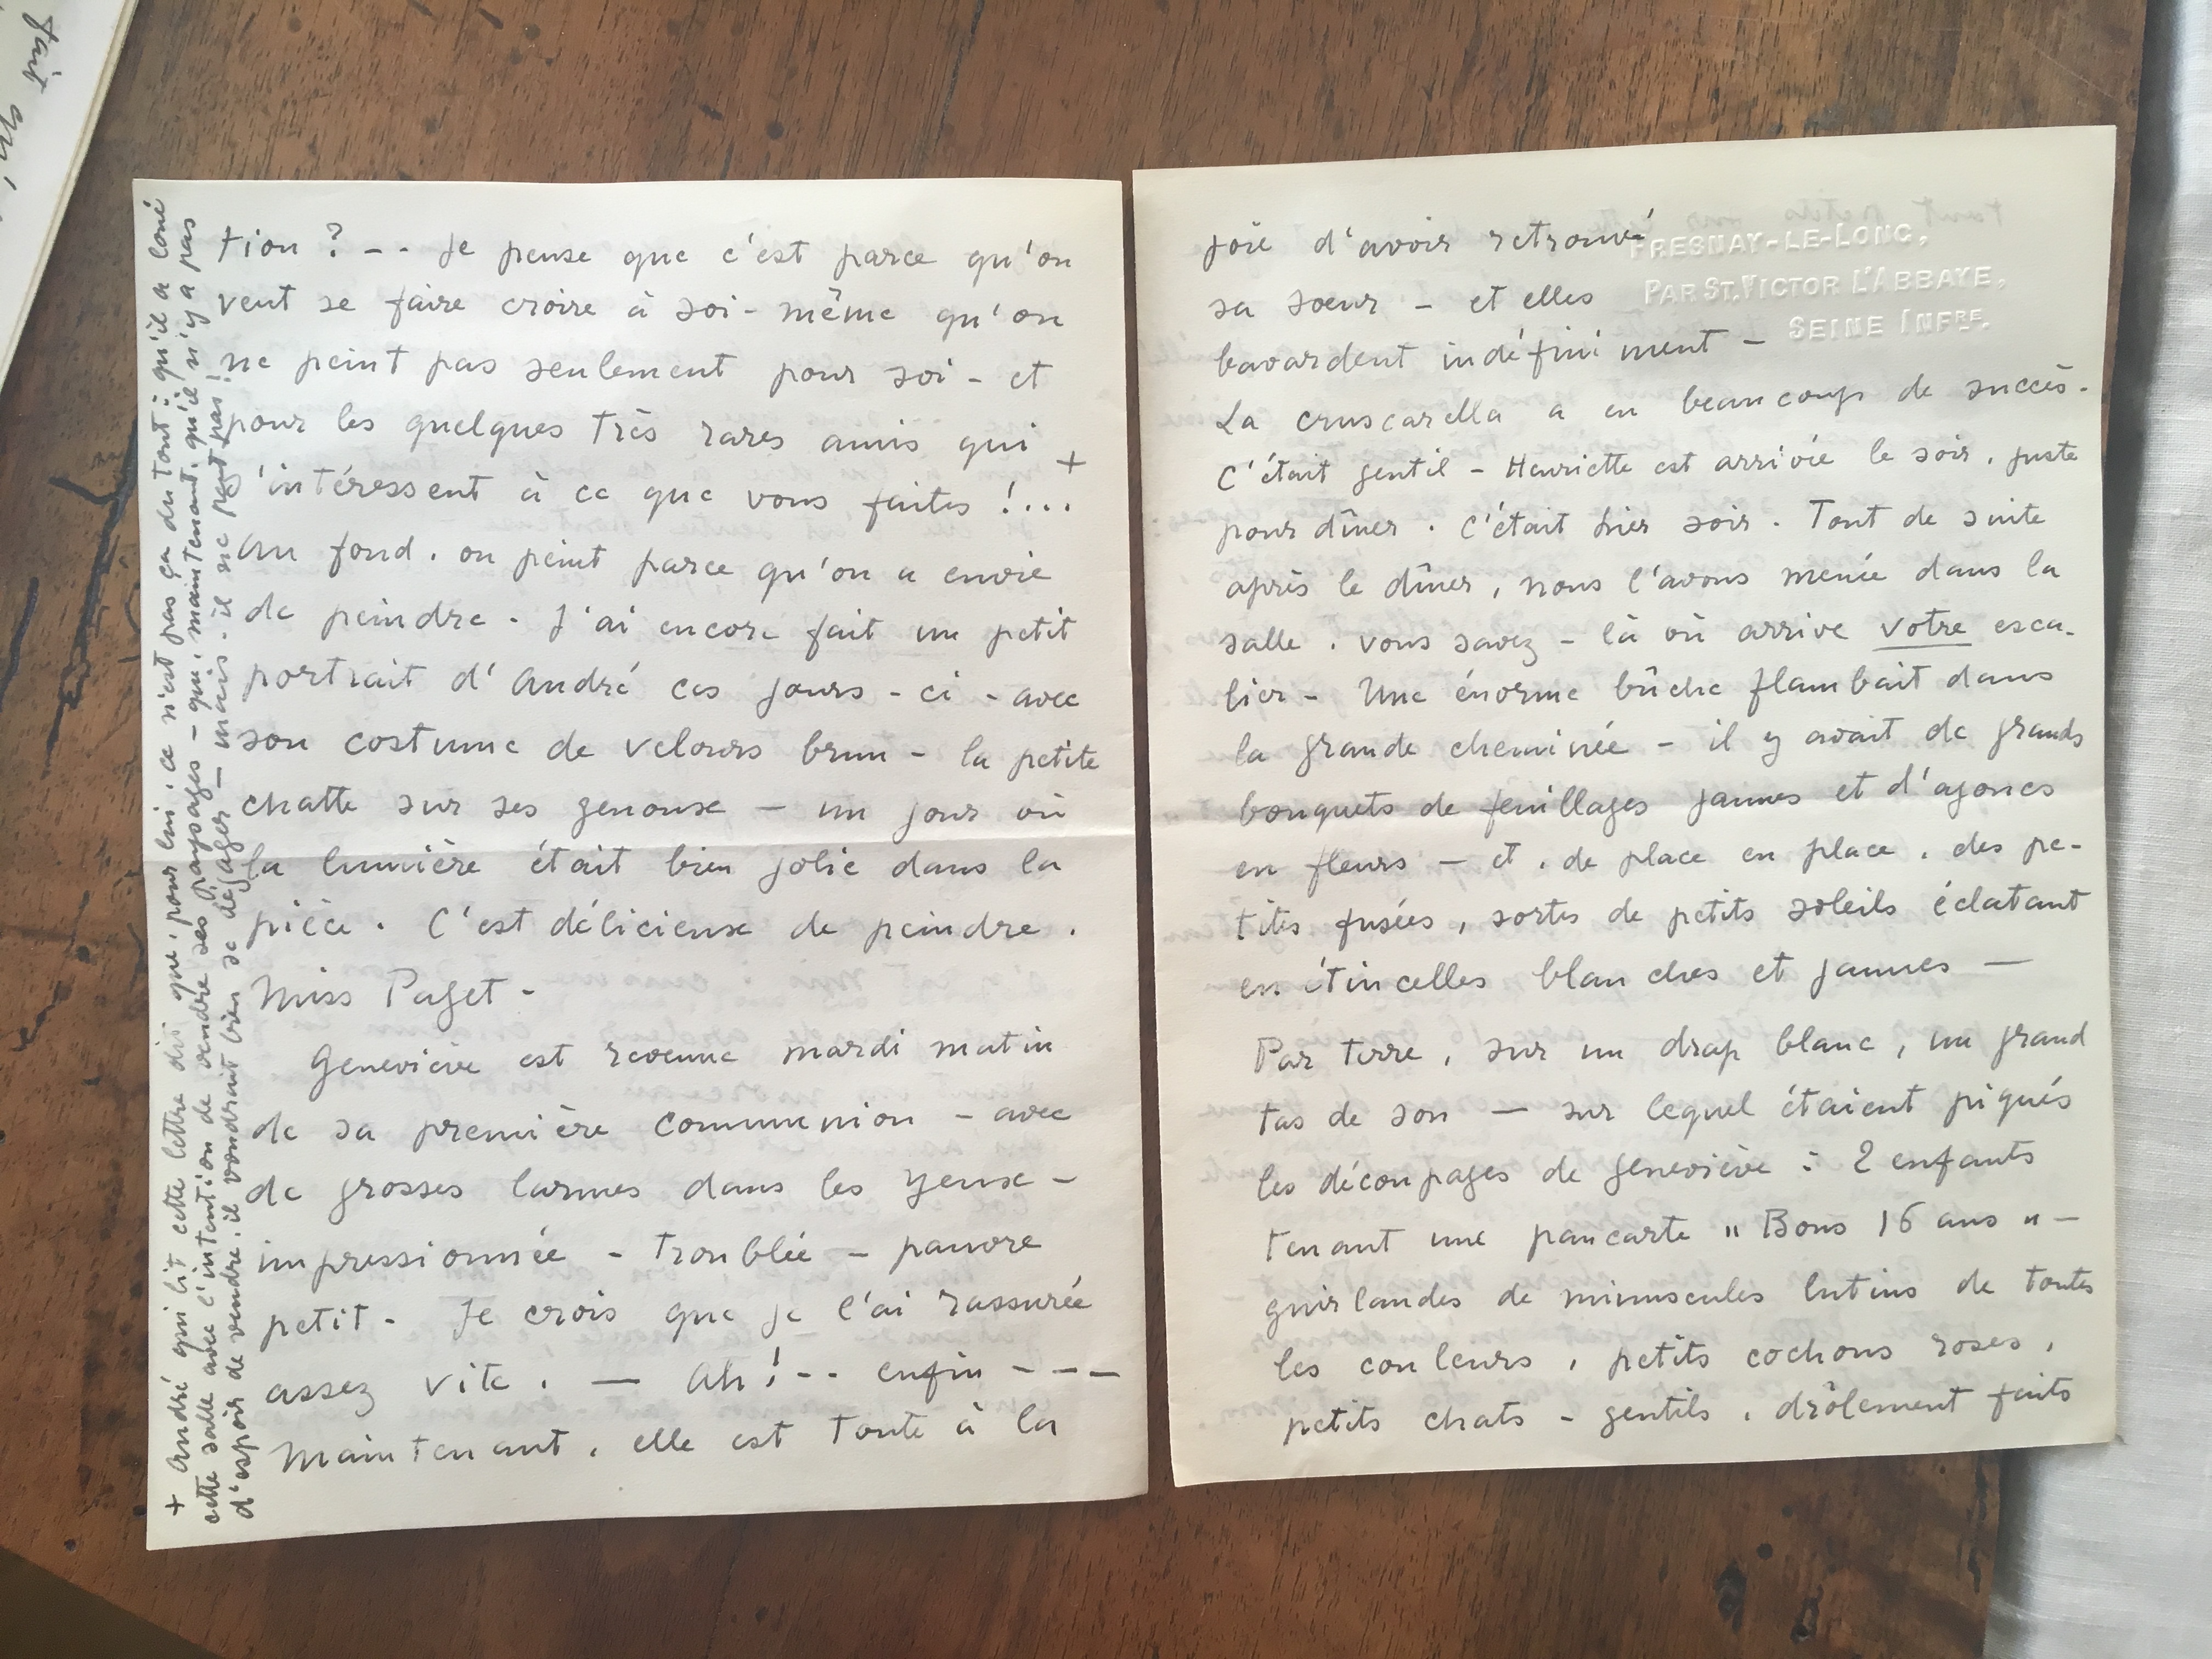 tion ? -- Je pense que c'est parce qu'on
veut se faire croire à soi-même qu'on
ne peint pas seulement pour soi - et
pour les quelques très rares amis qui +
s'intéressent à ce que vous faites !...
Au fond, on peint parce qu'on a envie
de peindre - J'ai encore fait un petit
portrait d'André ces jours-ci - avec
son costume de velours brun - la petite
chatte sur ses genoux - un jour où
la lumière était bien jolie dans la
pièce. C'est délicieux de peindre,
Miss Paget -
Geneviève est revenue mardi matin
de sa première communion - avec
de grosses larmes dans les yeux -
impressionnée - troublée - pauvre
petit - Je crois que je l'ai rassurée
assez vite. — Ah !-- enfin ---
Maintenant, elle est toute à la
+ André qui lit cette lettre dit que, pour lui, ce n'est pas ça du tout : qu'il a loué
cette salle avec l'intention de vendre ses paysages - que, maintenant, qu'il n'y a pas
d'espoir de vendre, il voudrait bien se dégager — mais, il ne peut pas !
FRESNAY-LE-LONG,
PAR ST. VICTOR L'ABBAYE,
SEINE INFRE.
joie d'avoir retrouvé
sa soeur - et elles
bavardent indéfiniment -
La cruscarella a eu beaucoup de succès.
C'était gentil - Henriette est arrivée le soir, juste
pour dîner. C'était hier soir. Tout de suite
après le dîner, nous l'avons menée dans la
salle, vous savez - là où arrive votre esca-
lier - Une énorme bûche flambait dans
la grande cheminée - il y avait de grands
bouquets de feuillages jaunes et d'ajoncs
en fleurs - et, de place en place, des pe-
tites fusées, sortes de petits soleils éclatant
en étincelles blanches et jaunes —
Par terre, sur un drap blanc, un grand
tas de son — sur lequel étaient piqués
les découpages de Geneviève : 2 enfants
tenant une pancarte "Bons 16 ans" -
guirlandes de minuscules lutins de toutes
les couleurs, petits cochons roses,
petits chats - gentils, drôlement faits